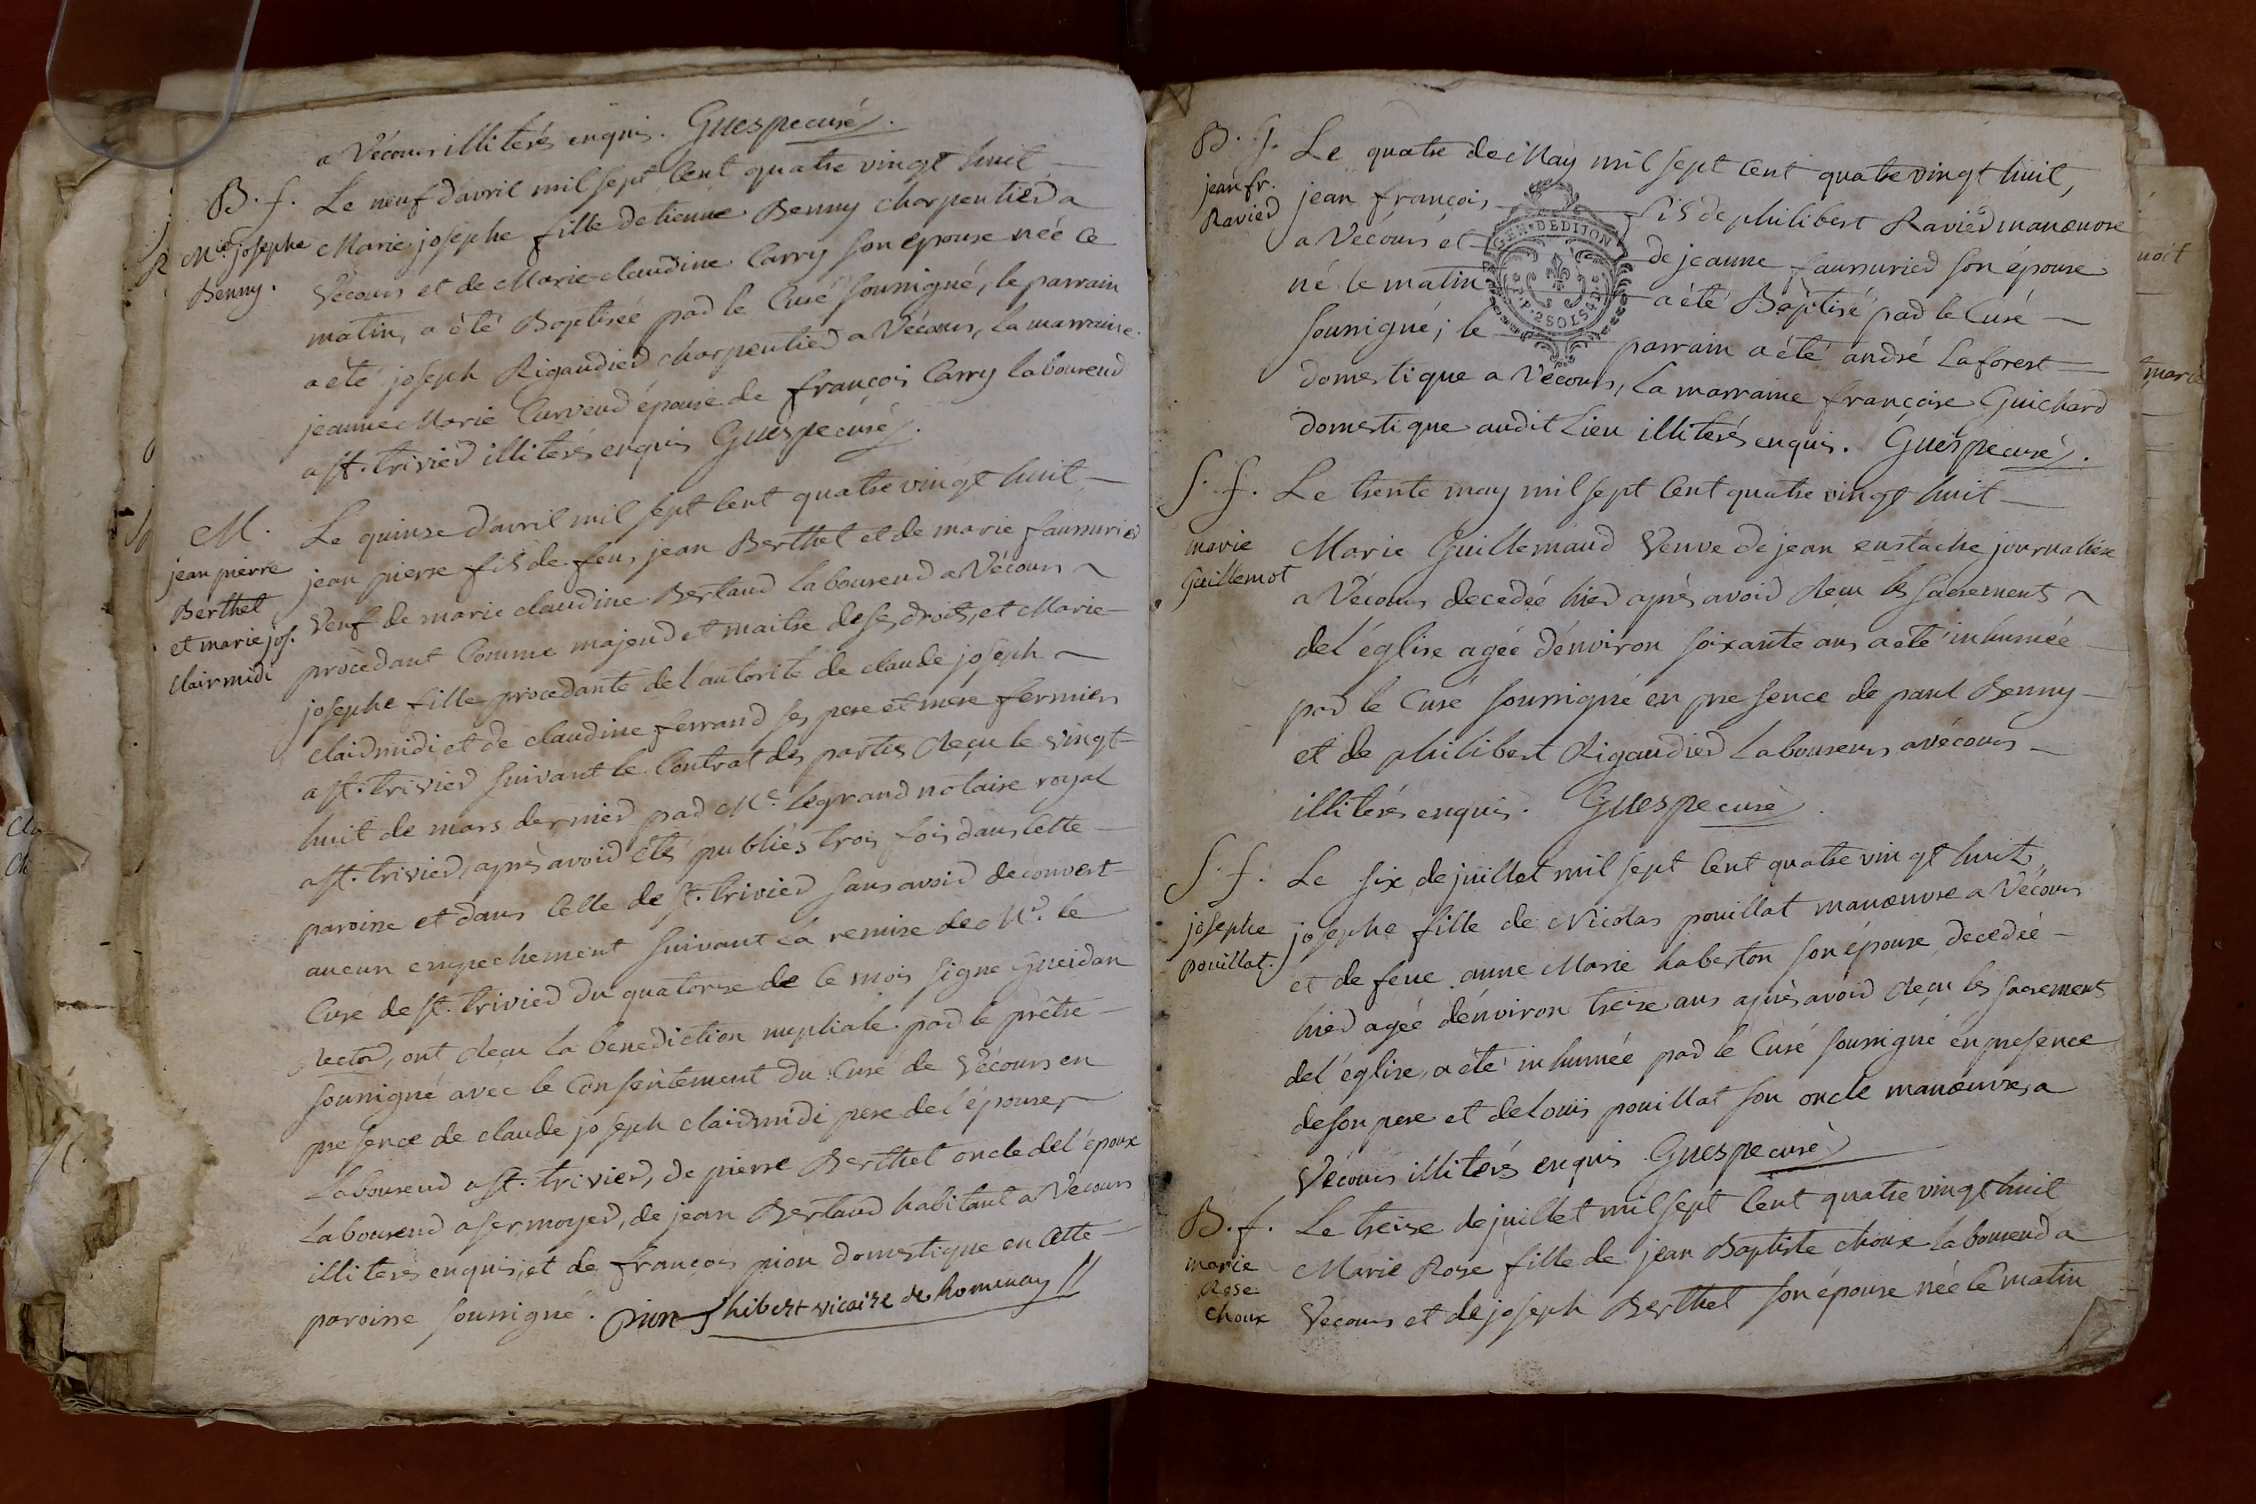 a Vécours illiterés enquis. Guespe curé.
B. f.
M.ie josephe
Benny.
Le neuf d'avril mil sept cent quatre vingt huit
Marie josephe fille detienne Benny charpentier a
Vécours et de Marie claudine Carry son épouse née ce
matin, a été Baptisée par le Curé soussigné, le parrain
a été joseph Rigaudier charpentier a Vécours, la marraine
jeanne Marie Curveur épouse de françois Carry laboureur
a st. trivier illiterés enquis Guespe curé.
M.
jean pierre
Berthet
et marie jos.
clairmidi
Le quinse d'avril mil sept cent quatre vingt huit
jean pierre fils de feu jean Berthet et de marie saussurier
Veuf de marie claudine Bertaud laboureur a Vécours
procedant Comme majeur et maitre de ses droits, et Marie
josephe fille procedante de l'autorité de claude joseph
clairmidi et de claudine ferrand ses pere et mere fermiers
a st. trivier suivant le Contrat des parties reçu le vingt
huit de mars dernier par Me. legrand notaire royal
a st. trivier, après avoir étés publiés trois fois dans cette
paroisse et dans celle de st. trivier sans avoir decouvert
aucun empechement suivant la remise de Mr. le
Curé de st. trivier du quatorse de ce mois signé Gueidan
rector, ont reçu la benediction nuptiale par le prêtre
soussigné avec le Consentement du Curé de Vécours en
presence de claude joseph clairmidi pere de l'épouse
laboureur a st. trivier, de pierre Berthet oncle de l'époux
laboureur a sermoyer, de jean Bertaud habitant a Vécours
illiterés enquis, et de françois pion domestique en cette
paroisse soussigné. pion hibert vicaire de Romenay
B. G.
jean fr.
Ravier
Le quatre de May mil sept cent quatre vingt huit,
jean françois fils de philibert Ravier manœuvre
a Vécours et de jeanne saussurier son épouse
né le matin a été Baptisé par le Curé
soussigné; le parrain a été andré Laforest
GEN. DE DIJON
domestique a Vécours, la marraine françoise Guichard
domestique audit lieu illiterés enquis. Guespe curé.
S. f.
marie
Guillemot
Le trente may mil sept cent quatre vingt huit
Marie Guillemaud Veuve de jean eustache journaliere
a Vécours decedée hier après avoir reçu les sacrements
de l'église agée d'environ soixante ans a eté inhumée
par le Curé soussigné en presence de paul Benny
et de philibert Rigaudier laboureurs a vécours
illiterés enquis. Guespe curé
S. f.
josephe
pouillat.
Le six de juillet mil sept cent quatre vingt huit
josephe fille de Nicolas pouillat manœuvre a Vécours
et de feue anne Marie haberton son épouse decedée
hier agée d'environ treise ans après avoir reçu les sacrements
de l'église, a été inhumée par le Curé soussigné en presence
de son pere et de louis pouillat son oncle manœuvres a
Vécours illiterés enquis Guespe curé
B. f.
marie
Rose
choux
Le treise de juillet mil sept cent quatre vingt huit
Marie Rose fille de jean Baptiste choux laboureur a
Vecours et de joseph Berthet son épouse née ce matin